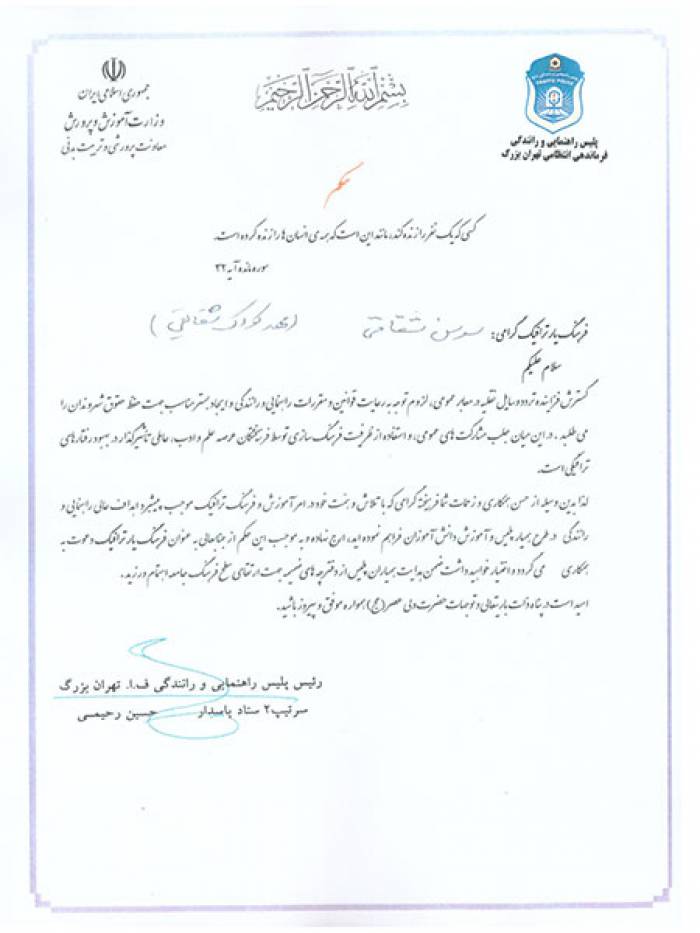 جمهوری اسلامی ایران
وزارت آموزش و پرورش
معاونت پرورشی و تربیت بدنی
بسم الله الرحمن الرحیم
TRAFFIC POLICE
پلیس راهنمایی و رانندگی
فرماندهی انتظامی تهران بزرگ
حکم
کسی که یک نفر را زنده کند، مانند این است که همه ی انسان ها را زنده کرده است.
سوره مائده آیه ۳۲
فرهنگ یار ترافیک گرامی: سوسن شقاقی (مهد کودک شقایق)
سلام علیکم
گسترش فزاینده تردد وسایل نقلیه در معابر عمومی، لزوم توجه به رعایت قوانین و مقررات راهنمایی و رانندگی و ایجاد بستر مناسب جهت حفظ حقوق شهروندان را
می طلبد. در این میان جلب مشارکت های عمومی، و استفاده از ظرفیت فرهنگ سازی توسط فرهیختگان عرصه علم و ادب، عاملی تاثیرگذار در بهبود رفتارهای
ترافیکی است.
لذا بدین وسیله از حسن همکاری و زحمات شما فرهیخته گرامی که با تلاش و همت خود در امر آموزش و فرهنگ ترافیک موجب پیشبرد اهداف عالی راهنمایی و
رانندگی در طرح همیار پلیس و آموزش دانش آموزان فراهم نموده اید، ارج نهاده و به موجب این حکم از جنابعالی به عنوان فرهنگ یار ترافیک دعوت به
همکاری می گردد و اختیار خواهید داشت ضمن هدایت همیاران پلیس از دفترچه های ضمیمه جهت ارتقای سطح فرهنگ جامعه اهتمام ورزید.
امید است در پناه ذات باریتعالی و توجهات حضرت ولی عصر(عج) همواره موفق و پیروز باشید.
رئیس پلیس راهنمایی و رانندگی ف.ا. تهران بزرگ
سرتیپ۲ ستاد پاسدار حسین رحیمی